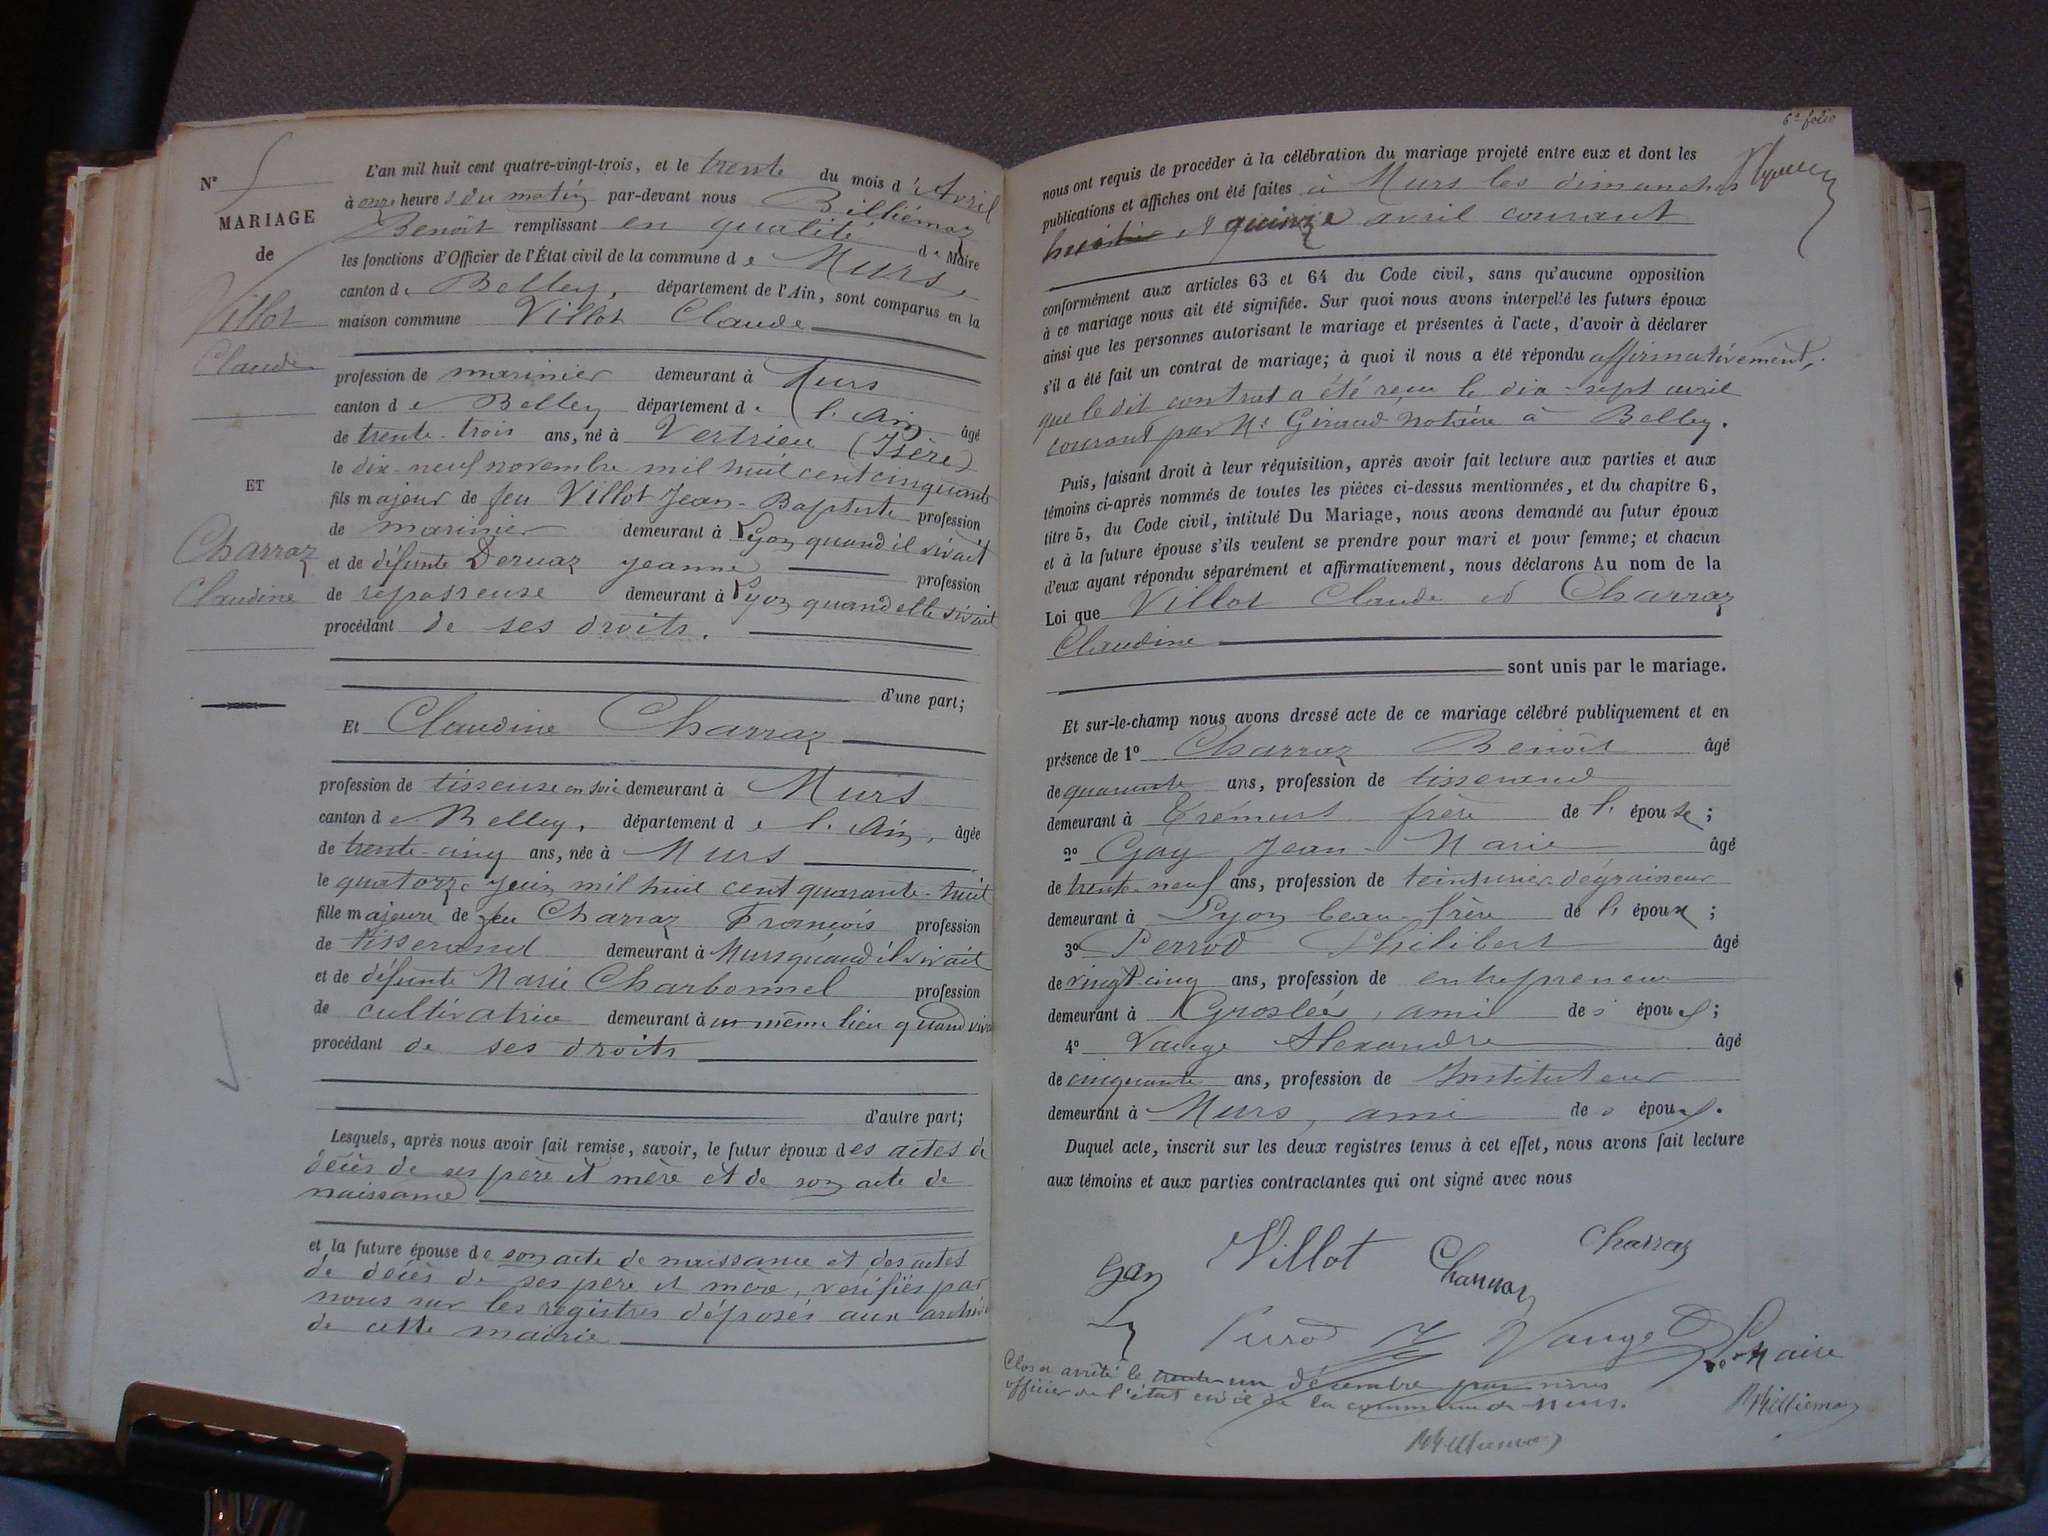 N° 5
MARIAGE
de
Villot
Claude
ET
Charraz
Claudine
L'an mil huit cent quatre-vingt-trois, et le trente du mois d'Avril
à onze heures du matin par-devant nous Billiémaz
Benoît remplissant en qualité de Maire
les fonctions d'Officier de l'État civil de la commune de Murs,
canton de Belley, département de l'Ain, sont comparus en la
maison commune Villot Claude
profession de marinier demeurant à Murs
canton de Belley département de l'Ain âgé
de trente-trois ans, né à Vertrieu (Isère)
le dix-neuf novembre mil huit cent cinquante
fils majeur de feu Villot Jean-Baptiste profession
de marinier demeurant à Lyon quand il vivait
et de défunte Dervaz Jeanne profession
de repasseuse demeurant à Lyon quand elle vivait
procédant de ses droits.
d'une part;
Et Claudine Charraz
profession de tisseuse en soie demeurant à Murs
canton de Belley, département de l'Ain, âgée
de trente-cinq ans, née à Murs
le quatorze Juin mil huit cent quarante-huit
fille majeure de feu Charraz François profession
de tisserand demeurant à Murs quand il vivait
et de défunte Marie Charbonnel profession
de cultivatrice demeurant à même lieu quand
procédant de ses droits
d'autre part;
Lesquels, après nous avoir fait remise, savoir, le futur époux des actes de
décès de ses père et mère et de son acte de
naissance
et la future épouse de son acte de naissance et des actes
de décès de ses père et mère, vérifiés par
nous sur les registres déposés aux archives
de cette mairie
6e folio
nous ont requis de procéder à la célébration du mariage projeté entre eux et dont les
publications et affiches ont été faites à Murs les dimanches
huit et quinze avril courant
conformément aux articles 63 et 64 du Code civil, sans qu'aucune opposition
à ce mariage nous ait été signifiée. Sur quoi nous avons interpellé les futurs époux
ainsi que les personnes autorisant le mariage et présentes à l'acte, d'avoir à déclarer
s'il a été fait un contrat de mariage; à quoi il nous a été répondu affirmativement,
que le dit contrat a été reçu le dix-sept avril
courant par Me Giraud Notaire à Belley.
Puis, faisant droit à leur réquisition, après avoir fait lecture aux parties et aux
témoins ci-après nommés de toutes les pièces ci-dessus mentionnées, et du chapitre 6,
titre 5, du Code civil, intitulé Du Mariage, nous avons demandé au futur époux
et à la future épouse s'ils veulent se prendre pour mari et pour femme; et chacun
d'eux ayant répondu séparément et affirmativement, nous déclarons Au nom de la
Loi que Villot Claude et Charraz
Claudine
sont unis par le mariage.
Et sur-le-champ nous avons dressé acte de ce mariage célébré publiquement et en
présence de 1° Charraz Benoît âgé
de quarante ans, profession de tisserand
demeurant à Trémurs frère de l'épouse;
2° Gay Jean-Marie âgé
de trente-neuf ans, profession de teinturier dégraisseur
demeurant à Lyon beau-frère de l'époux;
3° Perrod Philibert âgé
de vingt-cinq ans, profession de entrepreneur
demeurant à Groslée, ami des époux;
4° Vauge Alexandre âgé
de cinquante ans, profession de Instituteur
demeurant à Murs, ami des époux.
Duquel acte, inscrit sur les deux registres tenus à cet effet, nous avons fait lecture
aux témoins et aux parties contractantes qui ont signé avec nous
Gay Villot Charraz Charraz
Perrod Vauge Le Maire
Clos et arrêté le trente-un décembre par nous
officier de l'état civil de la commune de Murs.
Billiémaz
Billiémaz